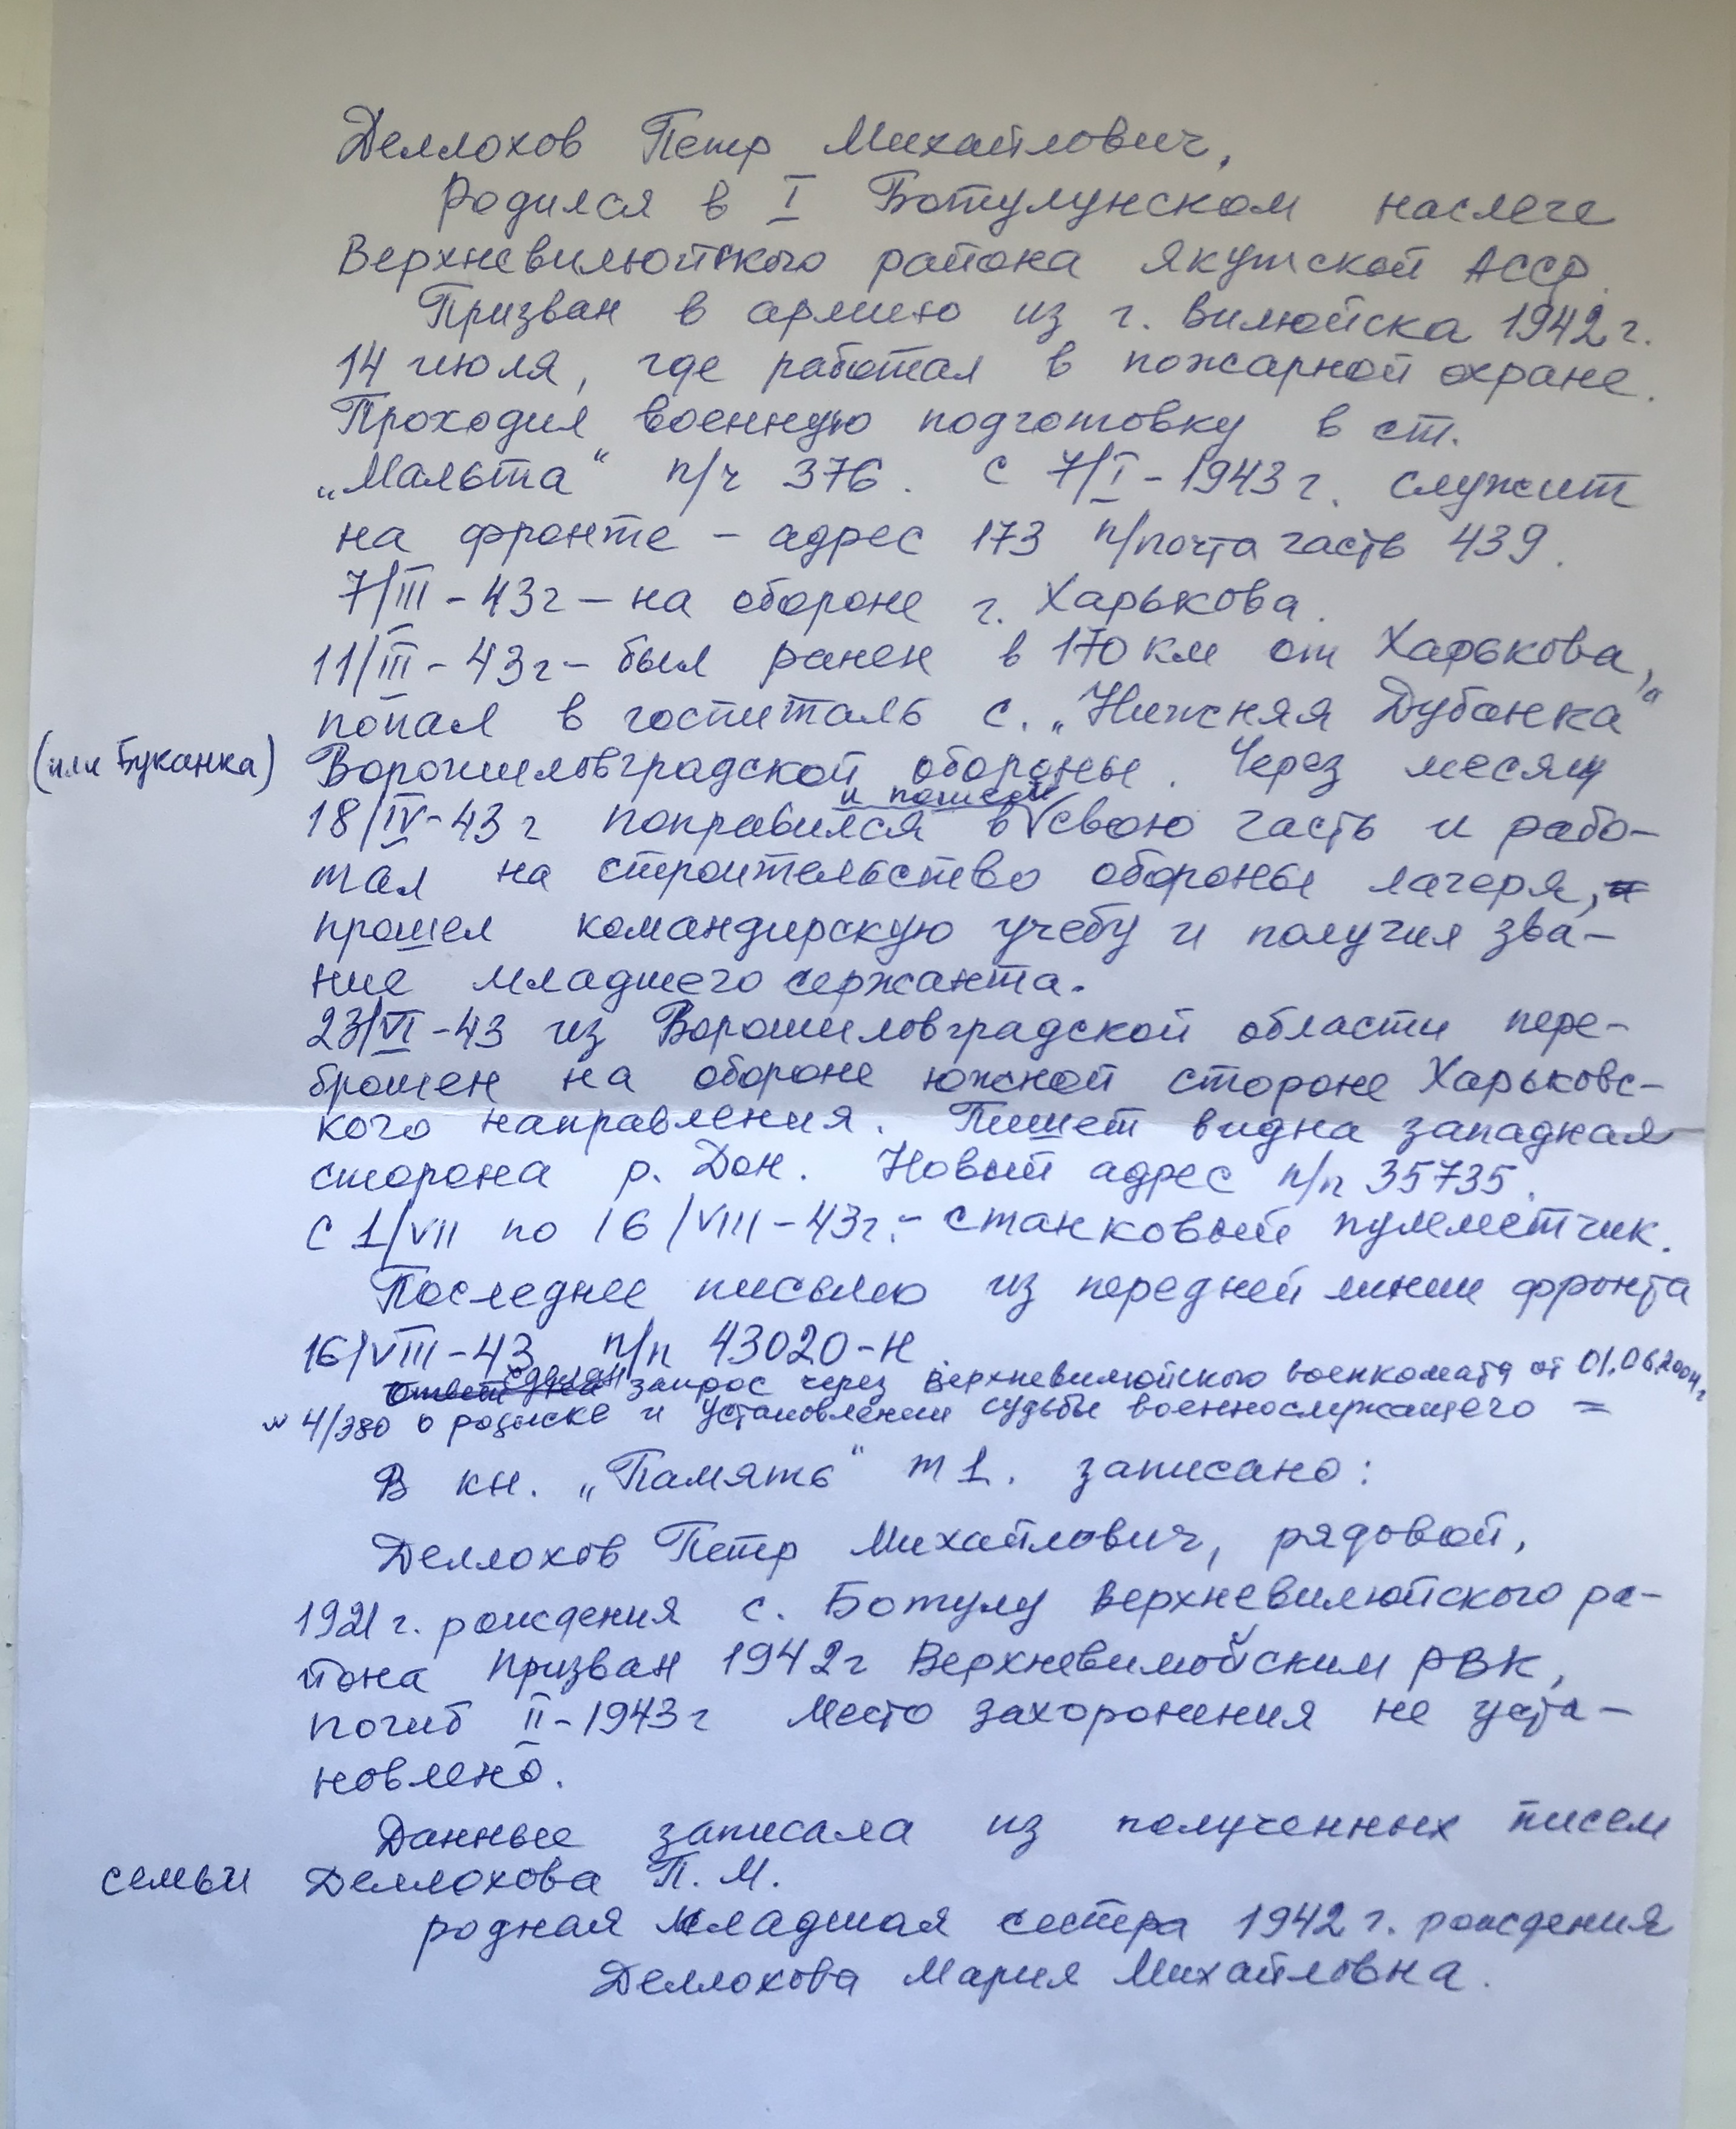 Деллохов Петр Михайлович,
Родился в I Ботулунском наслеге
Верхневилюйского района Якутской АССР.
Призван в армию из г. Вилюйска 1942 г.
14 июля, где работал в пожарной охране.
Проходил военную подготовку в ст.
„Мальта“ п/ч 376. С 7/I-1943 г. служит
на фронте – адрес 173 п/почта часть 439.
7/III-43г – на обороне г. Харькова.
11/III-43г – был ранен в 170 км от Харькова,
попал в госпиталь с. „Нижняя Дубанка“
(или Буканка) Ворошиловградской обороны. Через месяц
и пошел
18/IV-43 г поправился в свою часть и рабо-
тал на строительство обороны лагеря,
прошел командирскую учебу и получил зва-
ние младшего сержанта.
23/VI-43 из Ворошиловградской области пере-
брошен на обороне южной стороне Харьковс-
кого направления. Пишет видна западная
сторона р. Дон. Новый адрес п/п 35735.
С 1/VII по 16/VIII-43г. – станковый пулеметчик.
Последнее письмо из передней линии фронта
16/VIII-43 п/п 43020-Н
сделан запрос через Верхневилюйского военкомата от 01.06.2004 г
№ 4/380 о розыске и установлении судьбы военнослужащего =
В кн. „Память“ т 1. записано:
Деллохов Петр Михайлович, рядовой,
1921 г. рождения с. Ботулу Верхневилюйского ра-
йона призван 1942 г Верхневилюйским РВК,
погиб II-1943 г место захоронения не уста-
новлено.
Данные записала из полученных писем
семьи Деллохова П. М.
родная младшая сестра 1942 г. рождения
Деллохова Мария Михайловна.